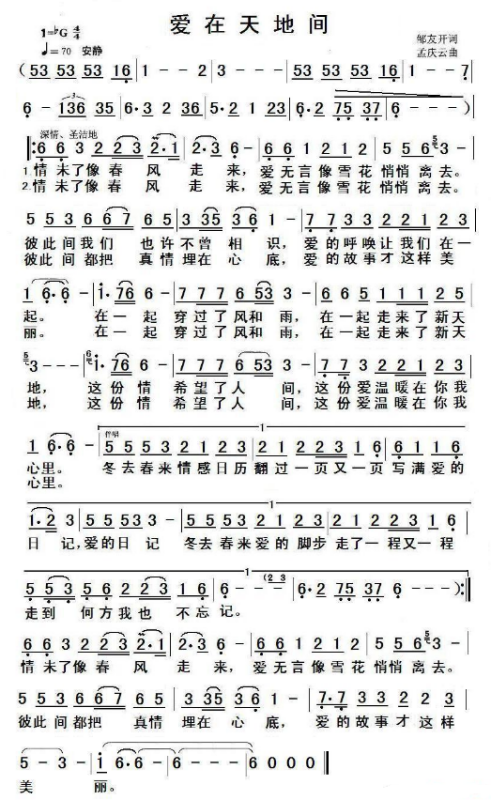 爱在天地间
1=♭G 4/4
♩=70 安静
邹友开词
孟庆云曲
(53 53 53 16 | 1 - - 2 | 3 - - - | 53 53 53 16 | 1 - - 7
6 - 136 35 | 6·3 2 36 | 5·2 1 23 | 6·2 75 37 | 6 - - - )
深情、圣洁地
‖: 6 6 3 2 2 3 | 2·1 2 3 - | 6 6 1 2 2 3 1 2 | 5 5 6 3 - |
1.情未了像春风走来，爱无言像雪花悄悄离去。
2.情未了像春风走来，爱无言像雪花悄悄离去。
5 5 3 6 6 7 6 | 3 35 3 6 - | 7 7 3 3 2 2 1 2
彼此间我们也许不曾相识，爱的呼唤让我们在一
彼此间都把真情埋在心底，爱的故事才这样美
1 6·6 - | 1·76 6 - | 7 7 7 6 53 3 - | 6 6 5 1 1 1 2 5
起。在一起穿过了风和雨，在一起走来了新天
丽。在一起穿过了风和雨，在一起走来了新天
3 - - - | 1·76 6 - | 7 7 7 6 53 3 - | 2 2 3 2 2 3 7
地，这份情希望了人间，这份爱温暖在你我
地，这份情希望了人间，这份爱温暖在你我
伴唱
1 6·6 - | 5 5 5 3 2 1 2 3 | 2 1 2 2 3 1 6 | 6 1 1 2
心里。冬去春来情感日历翻过一页又一页写满爱的
心里。
1·2 3 | 5 5 53 3 - | 5 5 5 3 2 1 2 3 | 2 1 2 2 3 1 6
日记，爱的日记冬去春来爱的脚步走了一程又一程
5 5 3 5 2 3 1 6 | 6 - - (2 3 | 6·2 75 37 | 6 - - - ) :‖
走到何方我也不忘记。
6 6 3 2 2 3 | 2·1 2 3 - | 6 6 1 2 2 3 1 2 | 5 5 6 3 -
情未了像春风走来，爱无言像雪花悄悄离去。
5 5 3 6 6 7 6 | 3 35 3 6 - | 7·7 3 3 2 2 1 2
彼此间都把真情埋在心底，爱的故事才这样
5 - 3 - | 1 6·6 - | 6 - - - | 6 0 0 0 ‖
美丽。